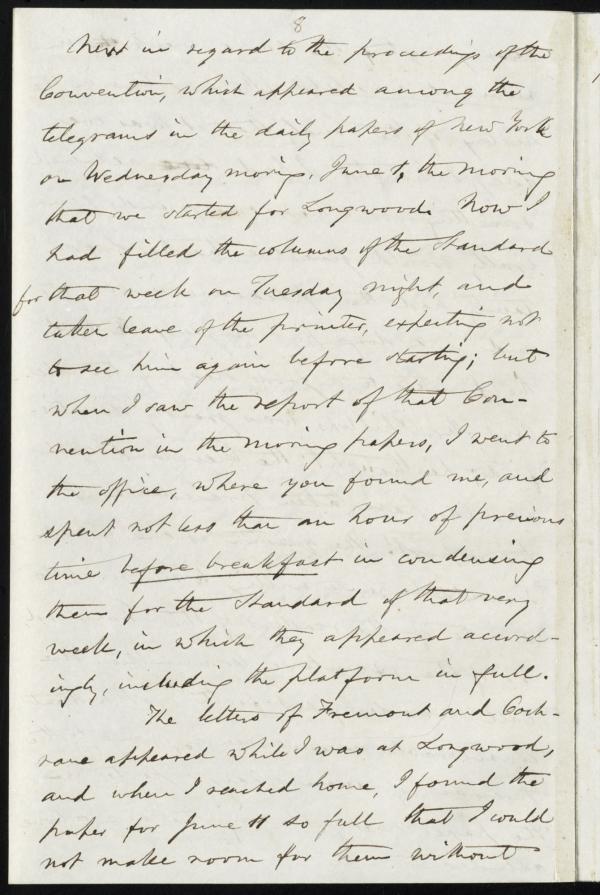 8
Next in regard to the proceedings of the
Convention, which appeared among the
telegrams in the daily papers of New York
on Wednesday morng, June 1, the morning
that we started for Longwood. Now I
had filled the columns of the Standard
for that week on Tuesday night, and
taken leave of the printer, expecting not
to see him again before starting; but
when I saw the report of that Con-
vention in the morning papers, I went to
the office, where you found me, and
spent not less than an hour of precious
time before breakfast in condensing
them for the Standard of that very
week, in which they appeared accord-
ingly, including the platform in full.
The letters of Fremont and Coch-
rane appeared while I was at Longwood,
and when I reached home, I found the
paper for June 11 so full that I could
not make room for them without